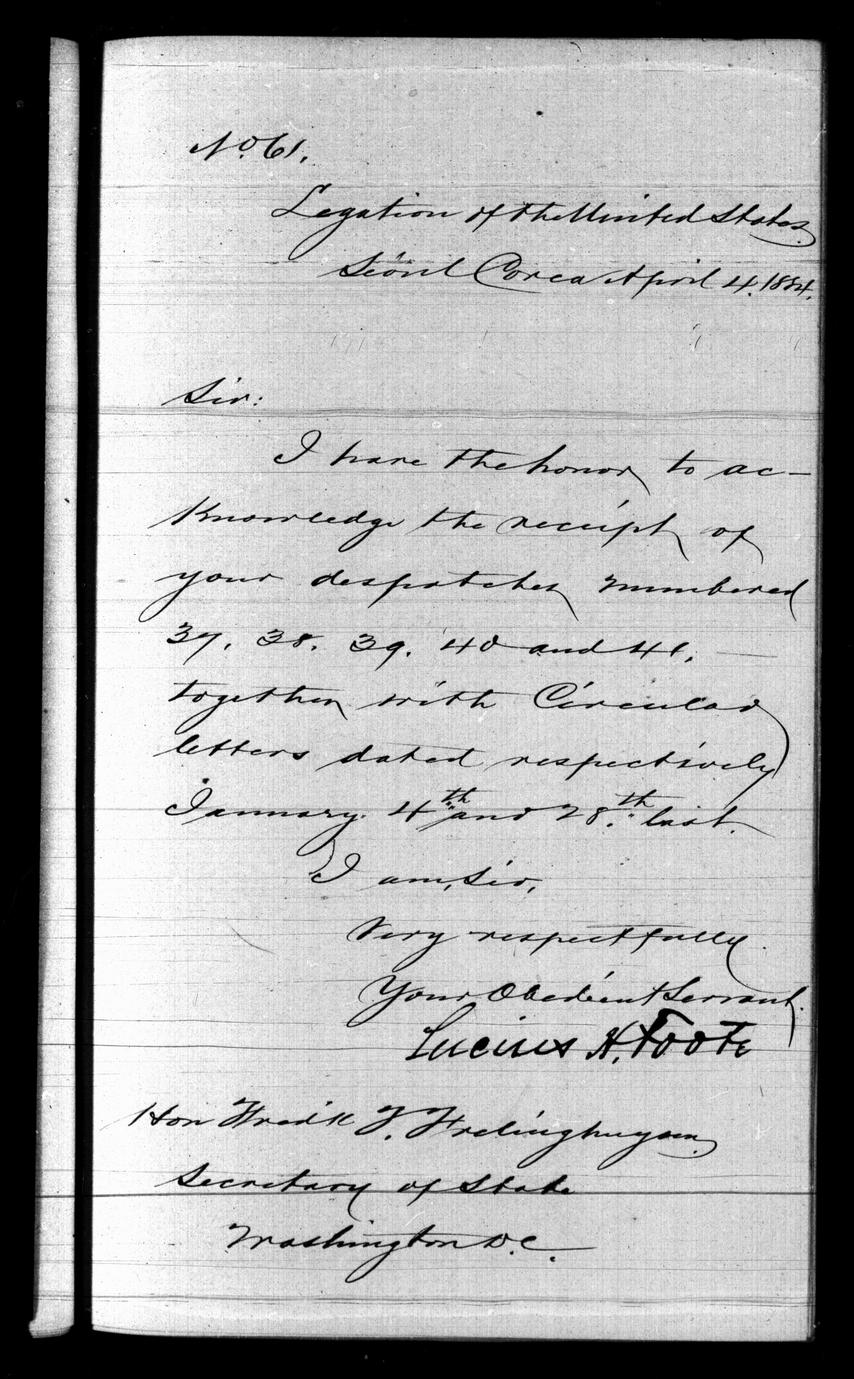 No. 61.
Legation of the United States
Séoul Corea April 4. 1884.
Sir:
I have the honor to ac-
knowledge the receipt of
your despatches numbered
37. 38. 39. 40 and 41.
together with Circular
letters dated respectively
January 4th and 28th last.
I am, Sir,
Very respectfully
Your Obedient Servant.
Lucius H. Foote
Hon Fred'k T. Frelinghuysen
Secretary of State
Washington D.C.